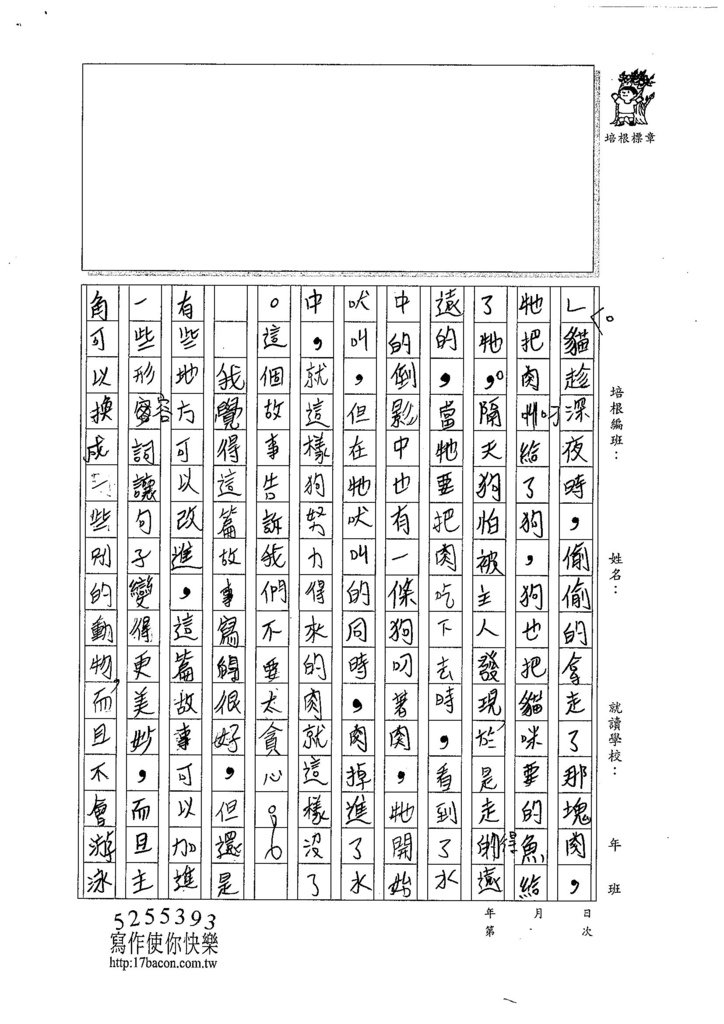 培根標章
培根編班：
姓名：
就讀學校：
年班
月日
年第次
」。貓趁深夜時，偷偷的拿走了那塊肉，
牠把肉叼給了狗，狗也把貓咪要的魚給
了牠。隔天狗怕被主人發現，於是走得遠
遠的，當牠要把肉吃下去時，看到了水
中的倒影中也有一條狗叼著肉，牠開始
吠叫，但在牠吠叫的同時，肉掉進了水
中，就這樣狗努力得來的肉就這樣沒了
。這個故事告訴我們不要太貪心。
我覺得這篇故事寫得很好，但還是
有些地方可以改進，這篇故事可以加進
一些形容詞讓句子變得更美妙，而且主
角可以換成一些別的動物，而且不會游泳
5255393
寫作使你快樂
http:17bacon.com.tw